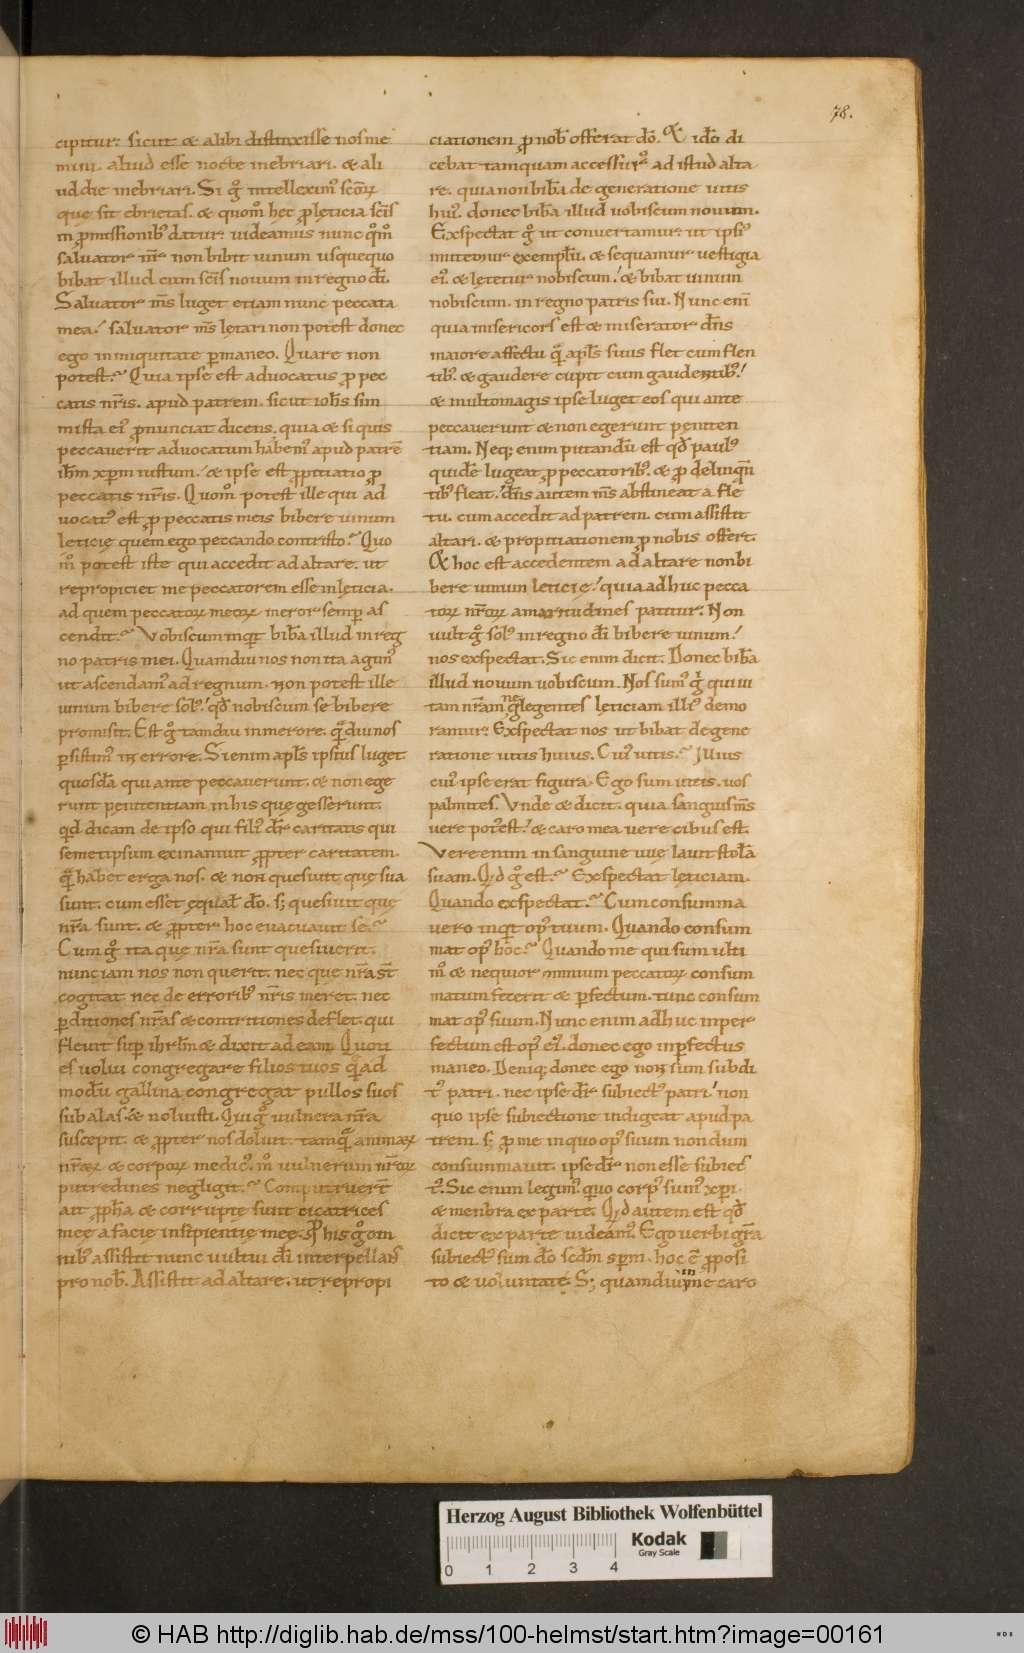 78.
cipitur. sicut & alibi distinxisse nos me
mini. aliud esse nocte inebriari. & ali
ud die inebriari. Si g̊ intelleximꝰ sc̄oꝝ
que sit ebrietas. & quom̊ hęc p̱ lęticia sc̄is
in p̱missionibꝰ datur. uideamus nunc qm̊
saluator nr̄ non bibit uinum usquequo
bibat illud cum sc̄is nouum in regno dī.
Saluator m̄s luget etiam nunc peccata
mea. saluator m̄s lętari non potest donec
ego in iniquitate ꝑmaneo. Quare non
potest? Quia ipse est aduocatus p̱ pec
catis nr̄is. apud patrem. sicut ioh̄s sim
mista eiꝰ p̱nunciat dicens. quia & si quis
peccauerit aduocatum habemꝰ apud patrē
ih̄m xp̄m iustum. & ipse est p̱pitiatio p̱
peccatis nr̄is. Quom̊ potest ille qui ad
uocatꝰ est p̱ peccatis meis bibere uinum
leticię quem ego peccando contristo? Quo
m̊ potest iste qui accedit ad altare. ut
repropiciet me peccatorem esse in leticia.
ad quem peccatoꝝ meoꝝ meror semꝑ as
cendit? Vobiscum inqt bibā illud in reg
no patris mei. Quamdiu nos non ita agimꝰ
ut ascendamꝰ ad regnum. non potest ille
uinum bibere solꝰ. qd̄ nobiscum se bibere
promisit. Est g̊ tamdiu in merore. qm̄diu nos
ꝑsistimꝰ in errore. Si enim apl̄s ipsius luget
quosdā qui ante peccauerunt. & non ege
runt penitentiam in his quę gesserunt.
qd dicam de ipso qui filiꝰ dr̄ caritatis qui
semetipsum exinaniuit p̱pter caritatem.
qm̄ habet erga nos. & non quesiuit que sua
sunt. cum esset equal dō. s; quesiuit quę
nr̄a sunt. & p̱pter hoc euacuauit se?
Cum g̊ ita quę nr̄a sunt quesiuerit.
nunc iam nos non querit. nec que nr̄a st̄
cogitat nec de erroribꝰ nr̄is meret. nec
ꝑditiones nr̄as & contritiones deflet. qui
fleuit suꝑ ihrl̄m & dixit ad eam. Quoti
es uolui congregare filios tuos qm̄ad
modū gallina congregat pullos suos
sub alas. & noluisti. Qui g̊ uulnera nr̄a
suscepit. & p̱pter nos doluit. tamqm̄ animaꝝ
nr̄aꝝ & corpoꝝ medicꝰ. m̊ uulnerum nr̄oꝝ
putredines negligit? Computruert̄
ait p̱ph̄a & corruptę sunt cicatrices
meę a facie insipientię meę. P̱ his g̊ om
nibꝰ assistit nunc uultui dī interpellans
pro nob̄. Assistit ad altare. ut repropi
ciationem p̱ nob̄ offerat dō. & idō di
cebat tamquam accessurꝰ ad istud alta
re. quia non bibā de generatione uitis
huiꝰ. donec bibā illud uobiscum nouum.
Exspectat g̊ ut conuertamur. ut ipsiꝰ
imitemur exemplū. & sequamur uestigia
eiꝰ & lętetur nobiscum. & bibat uinum
nobiscum. in regno patris sui. Nunc enī
quia misericors est & miserator dn̄s
maiore affectu qm̄ apl̄s suus flet cum flen
tibꝰ. & gaudere cupit cum gaudentibꝰ.
& multo magis ipse luget eos qui ante
peccauerunt & non egerunt peniten
tiam. Neq; enim putandū est qd̄ paulꝰ
quidē lugeat p̱ peccatoribꝰ. & p̱ delinqn̄
tibꝰ fleat. dn̄s autem m̄s abstineat a fle
tu. cum accedit ad patrem. cum assistit
altari. & propitiationem p̱ nobis offert.
& hoc est accedentem ad altare non bi
bere uinum leticię. quia adhuc pecca
toꝝ nr̄oꝝ amaritudines patitur. Non
uult g̊ solꝰ in regno dī bibere uinum.
nos exspectat. Sic enim dicit. Donec bibā
illud nouum uobiscum. Nos sumꝰ g̊ qui ui
tam nr̄am neglegentes lęticiam illiꝰ demo
ramur. Exspectat nos ut bibat de gene
ratione uitis huius. Cuiꝰ uitis? Illius
cuiꝰ ipse erat figura. Ego sum uitis. uos
palmites. Vnde & dicit. quia sanguis m̄s
uere potꝰ est. & caro mea uere cibus est.
Vere enim in sanguine uuę lauit stolā
suam. Qid g̊ est? Exspectat lęticiam.
Quando exspectat? Cum consumma
uero inqt opꝰ tuum. Quando consum
mat opꝰ hoc? Quando me qui sum ulti
mꝰ & nequior omnium peccatoꝝ consum
matum fecerit & ꝑfectum. tunc consum
mat opꝰ suum. Nunc enim adhuc inper
fectum est opꝰ eiꝰ. donec ego inꝑfectus
maneo. Deniq; donec ego non sum subdi
tꝰ patri. nec ipse dr̄ subiectꝰ patri. non
quo ipse subiectione indigeat apud pa
trem. s; p̱ me in quo opꝰ suum nondum
consummauit. ipse dr̄ non esse subiec
tꝰ. Sic enim legimꝰ. quo corpꝰ sumꝰ xp̄i
& menbra ex parte. Qid autem est qd̄
dicit ex parte uideamꝰ. Ego uerbi gr̄a
subiectꝰ sum dō scd̄m sp̄m. hoc ē p̱posi
to & uoluntate. S; quamdiu in me caro
Herzog August Bibliothek Wolfenbüttel
Kodak
Gray Scale
0 1 2 3 4
© HAB http://diglib.hab.de/mss/100-helmst/start.htm?image=00161